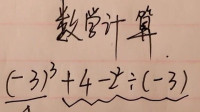 数学计算
(-3)³+4-2²÷(-3)